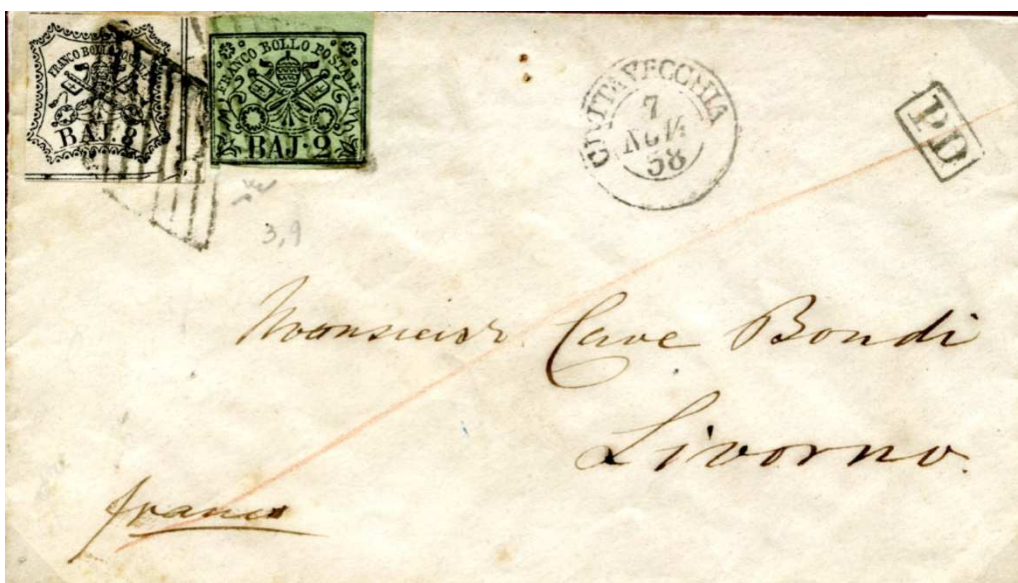 FRANCO BOLLO POSTALE
BAJ. 8
FRANCO BOLLO POSTAL
BAJ. 2
CIVITAVECCHIA
7
NOV
58
P.D
3,9
Monsieur Cave Bondi
Livorno.
franco